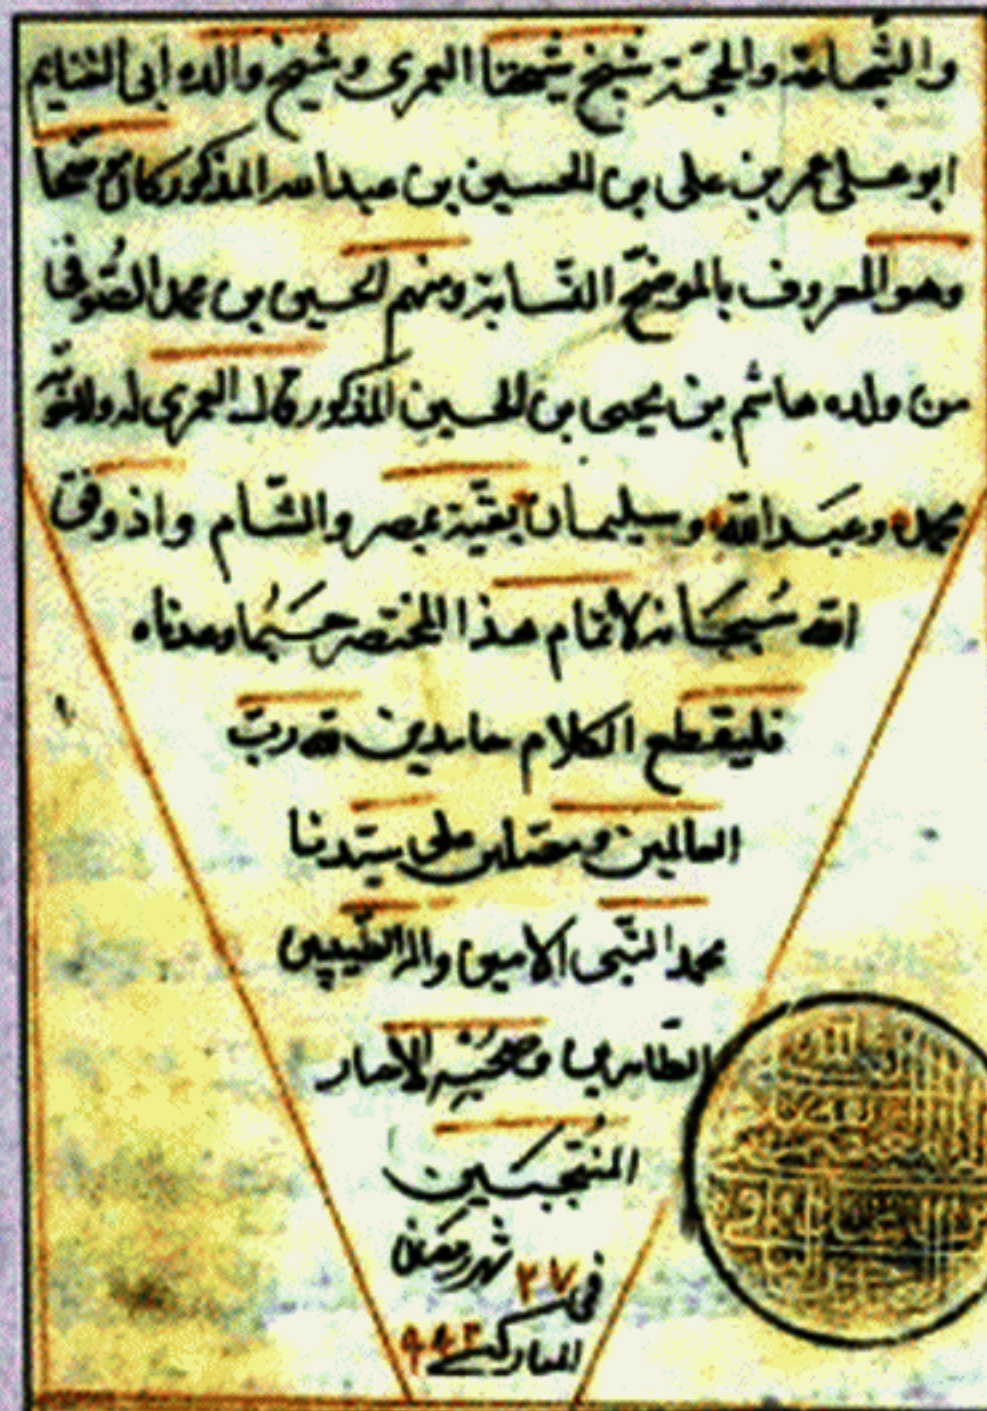 والشجاعة والحجة شيخ شيخنا العمرى وشيخ والده ابى الغنايم
ابو على عمر بن على بن الحسين بن عبدالله المذكور كان
وهو المعروف بالموضح النسابة ومنهم الحسين بن محمد الصوفى
من ولده هاشم بن يحيى بن الحسين المذكور قال العمرى له ولاخوته
محمد وعبدالله وسليمان بقية بمصر والشام واذ وفق
الله سبحانه لاتمام هذا المختصر حسبما وعدناه
فليقطع الكلام حامدين لله رب
العالمين ومصلين على سيدنا
محمد النبى الامين واله الطيبين
الطاهرين وصحبه
المنتجبين
فى ٢٧ شهر رمضان
المبارك سنة